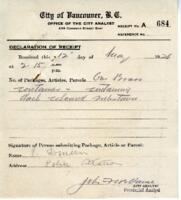 City of Vancouver, B. C.
OFFICE OF THE CITY ANALYST
RECEIPT No. A 684
DECLARATION OF RECEIPT
Received this 12 day of May 1926
at 2.15
No. of Packages, Articles, Parcels. One Brass
container - containing
dark coloured substance
Signature of Person submitting Package, Article or Parcel:
Name
Address Police Station
CITY ANALYST
Provincial Analyst